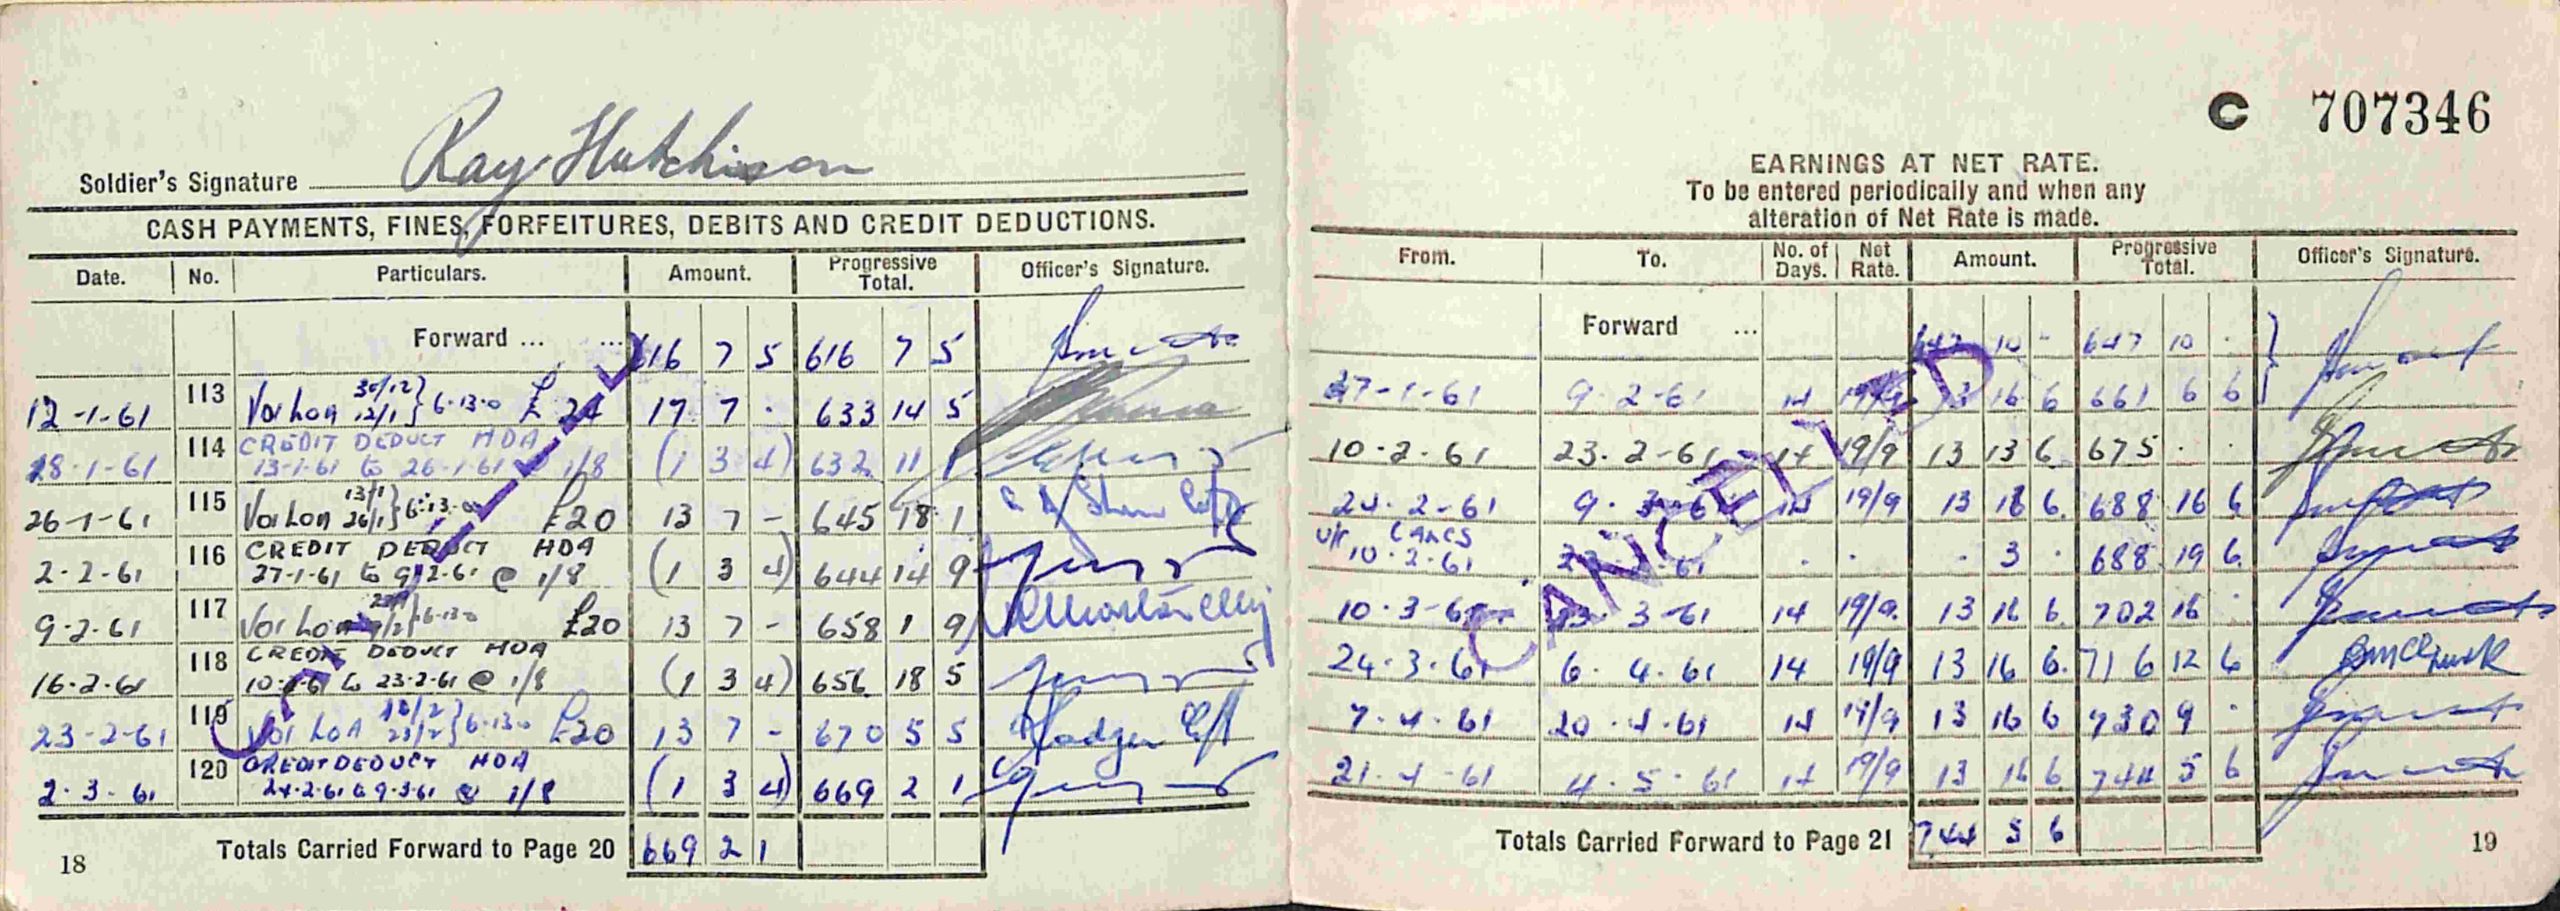 Soldier's Signature Ray Hutchison
CASH PAYMENTS, FINES, FORFEITURES, DEBITS AND CREDIT DEDUCTIONS.
Date. No. Particulars. Amount. Progressive Total. Officer's Signature.
Forward ... ... 616 7 5 616 7 5
12-1-61 113 30/12 12/1 } 6.13.0 £ 24 17 7 . 633 14 5
28-1-61 114 CREDIT DEDUCT MDA 13-1-61 to 26-1-61 @ 1/8 (1 3 4) 632 11 1
26-1-61 115 13/1 26/1 } 6.13.0 £20 13 7 - 645 18 1
2.2-61 116 CREDIT DEDUCT MDA 27-1-61 to 9.2-61 @ 1/8 (1 3 4) 644 14 9
9-2-61 117 6-13-0 £20 13 7 - 658 1 9
16-2-61 118 CREDIT DEDUCT MDA 10-2-61 to 23-2-61 @ 1/8 (1 3 4) 656 18 5
23-2-61 119 } 6.13.0 £20 13 7 - 670 5 5
2.3.61 120 CREDIT DEDUCT MDA 24-2-61 to 9-3-61 @ 1/8 (1 3 4) 669 2 1
Totals Carried Forward to Page 20 669 2 1
18
CANCELLED
C 707346
EARNINGS AT NET RATE.
To be entered periodically and when any
alteration of Net Rate is made.
From. To. No. of Days. Net Rate. Amount. Progressive Total. Officer's Signature.
Forward ... 647 10 - 647 10 .
27-1-61 9.2-61 14 19/9 13 16 6 661 6 6
10.2.61 23.2-61 14 19/9 13 13 6 675 . .
24.2-61 9.3-61 14 19/9 13 16 6 688 16 6
10.2-61 . . . 3 . 688 19 6
10.3-61 23.3-61 14 19/9 13 16 6 702 16 .
24.3.61 6.4.61 14 19/9 13 16 6 716 12 6
7.4.61 20.4.61 14 19/9 13 16 6 730 9 .
21.4-61 4.5.61 14 19/9 13 16 6 744 5 6
Totals Carried Forward to Page 21 744 5 6
19
CANCELLED